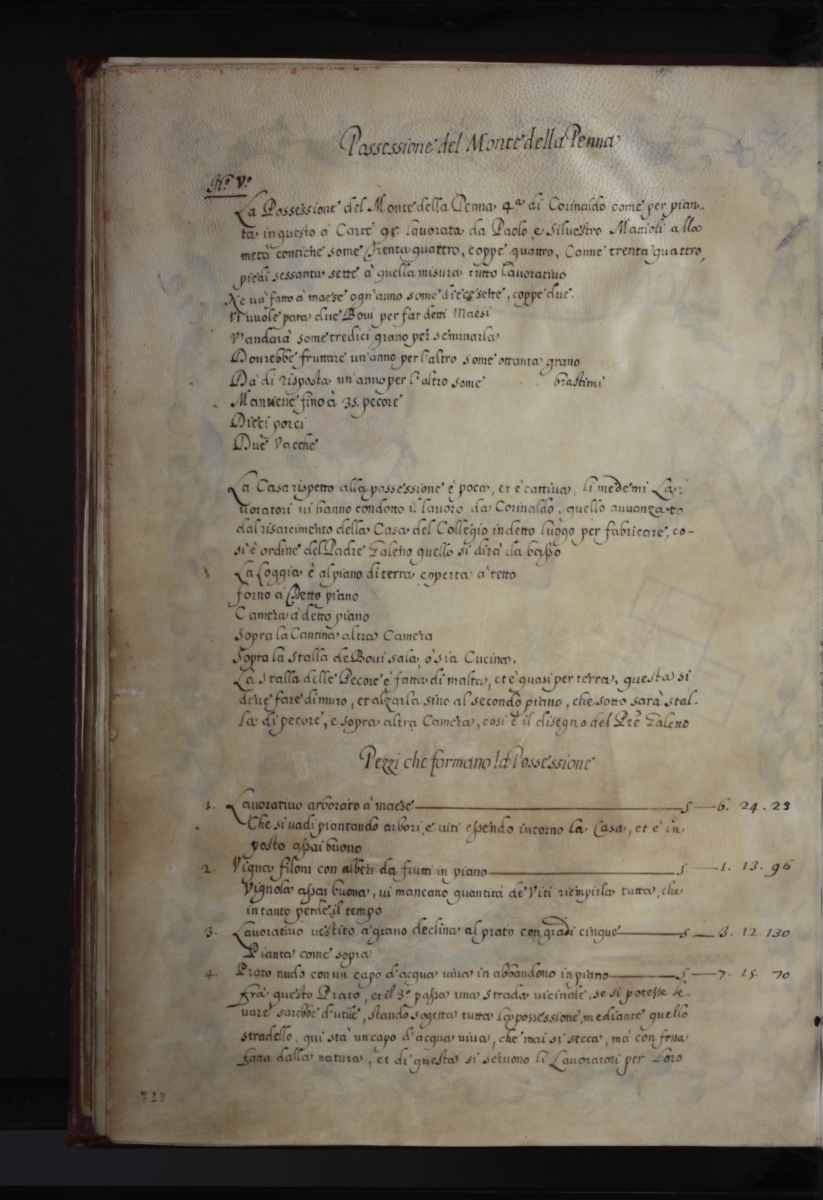 Possessione del Monte della Penna
No. Vo.
La Possessione del Monte della Penna 4a di Corinaldo come per pian-
ta in questo à Carte 95 lavorata da Paolo e Silvestro Mattioli alla
metà contiche some Trenta quattro, coppe quattro, Canne trenta quattro,
piedi sessanta sette à quella misura tutto lavorativo
Ne và fatto à maese ogn'anno some diecesette, coppe due.
Vi vuole para due Bovi per far detti Maesi
V'andarà some tredici grano per seminarla
Dovrebbe fruttare un'anno per l'altro some ottanta grano
Dà di risposta un'anno per l'altro some biastimi
Mantiene fino à 35. pecore
Dieci porci
Due Vacche
La Casa rispetto alla possessione è poca, et è cattiva, li medemi La-
voratori vi hanno condotto il lavoro da Corinaldo, quello avvanzato
dal risarcimento della Casa del Collegio in detto luogo per fabricare, co-
sì è ordine del Padre Galeno quello si dirà da basso
La Loggia è al piano di terra coperta a tetto
forno à Detto piano
Camera à detto piano
Sopra la Cantina altra Camera
Sopra la Stalla de Bovi sala, ò sia Cucina.
La Stalla delle Pecore è fatta di malta, et è quasi per terra, questa si
deve fare di muro, et alzarla sino al secondo piano, che sotto sarà stal-
la di pecore, e sopra altra Camera, così è il disegno del Pre Galeno
Pezzi che formano la Possessione
1. Lavorativo arborato à maese — S — 6. 24. 23
Che si vadi piantando arbori, e viti essendo intorno la Casa, et è in
posto assai buono
2. Vigna filoni con alberi da frutti in piano — S — 1. 13. 96
Vignola assai buona, vi mancano quantità de Viti riempirla tutta, che
in tanto perde il tempo
3. Lavorativo vestito à grano declina al prato con gradi cinque — S — 3. 12. 130
Pianta come sopra
4. Prato nudo con un capo d'acqua viva in abbandono in piano — S — 7. 15. 70
frà questo Prato, et il 3o. passa una strada vicinale, se si potesse le-
vare sarebbe d'utile, stando sogetta tutta la possessione, mediante quello
stradello, qui stà un capo d'acqua viva, che mai si secca, mà con fonta
fatta dalla natura, et di questa si servono li Lavoratori per loro